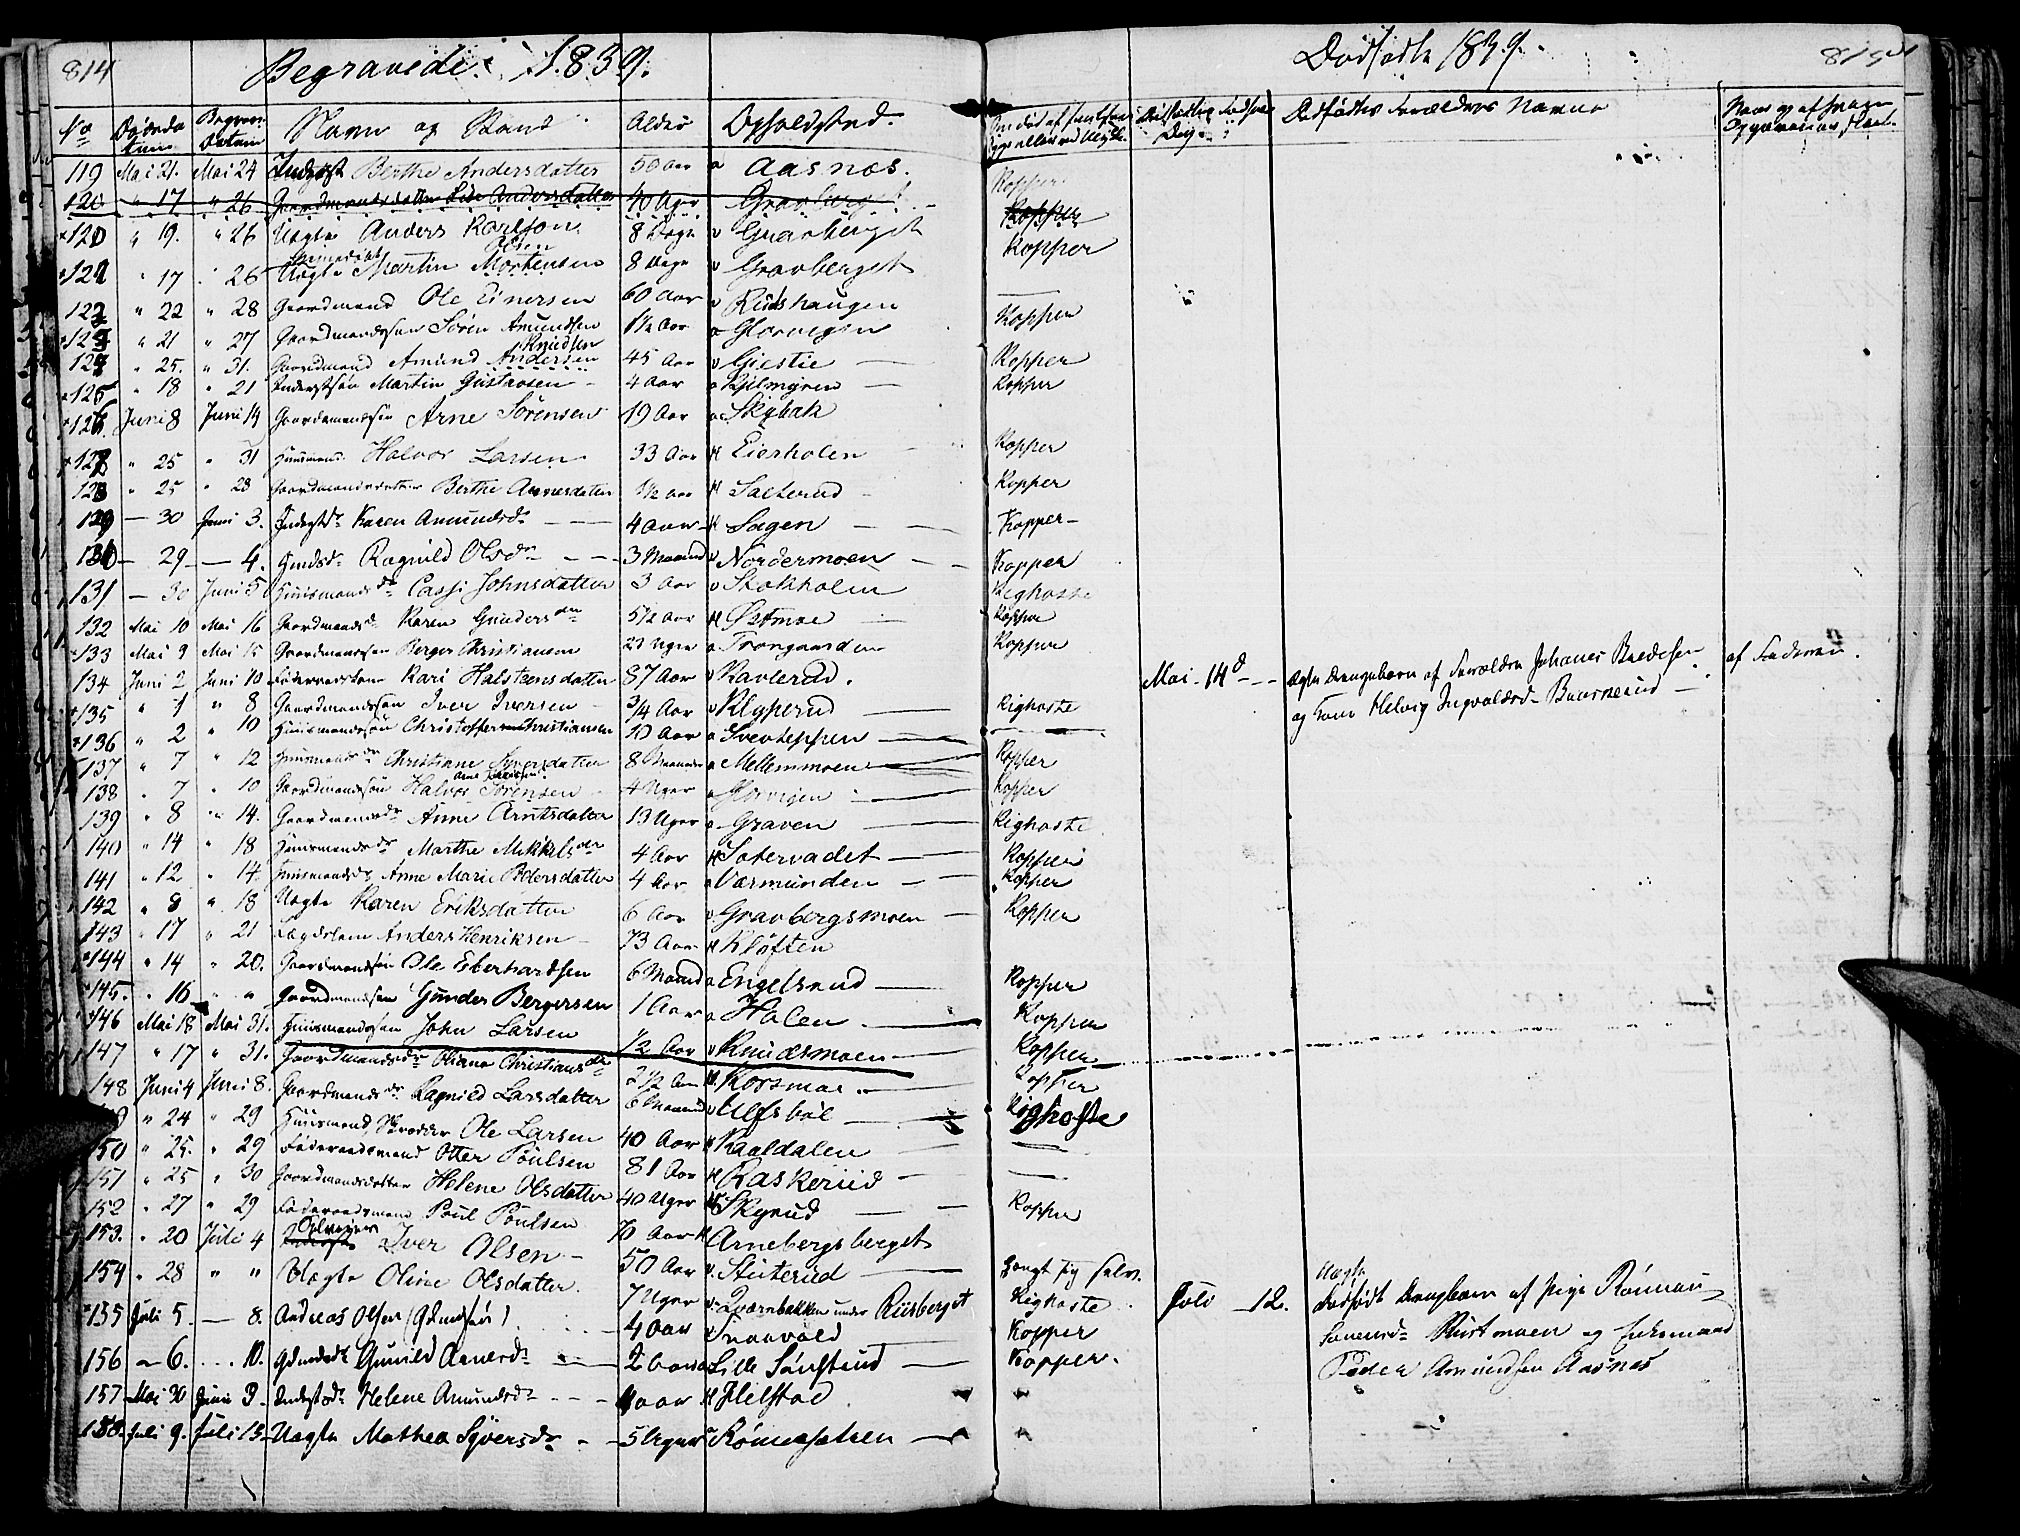 814
Begravede 1839.
No Døds Datum Begrav. Datum Navn og Stand Alder Opholdsted.
119 Mai 21. Mai 24 Inderst Berthe Andersdatter 50 Aar Aasnæs.
120 " 17 " 26 Gaardmandsdatter Lise Andersdatter 40 Uger Gravberget
120 " 19. " 26 Uægte Anders Karlson 8 Dage Gravberget
Olsen
121 " 17 " 26 Uægte Martin Mortensen 8 Dage Gravberget
122 " 22 " 28 Gaardmand Ole Einersen 60 Aar Rudshaugen
123 " 21 " 27 Gaardmandssøn Søren Amundsen 1½ Aar Glorvigen
Knudsen
124 " 25. " 31. Gaardmand Amund Andersen 45 Aar Gjestie
125 " 18 " 21 Inderstsøn Martin Gustavsen 4 Aar Kjelmyren
126 Juni 8 Juni 14 Gaardmandssøn Arne Sørensen 19 Aar Skybak
127 " 25 " 31 Huusmand Halvor Larsen 33 Aar Eierholen
128 " 25 " 28 Gaardmandsdatter Berthe Arnesdatter ½ Aar Sæterud
129 — 30 Juni 3. Inderstdr Karen Amundsdr 4 Aar Sagen
130 — 29 — 4. Huusdr Ragnild Olsdr 3 Maaned Nordermoen
131 — 30 Juni 5 Huusmandsdr Cassi Johnsdatter 3 Aar Stokholm
132 Mai 10 Mai 16 Gaardmandsdr Karen Gundersdtr 5½ Aar Østmoe
133 Mai 9 Mai 15 Gaardmandssøn Berger Christiansen 20 Uger Trongaarden
134 Juni 2 Juni 10 Føderaadskone Kari Halsteensdatter 87 Aar Kavlerud.
135 " 1 " 8 Gaardmandssøn Iver Iversen ¾ Aar Klyperud
136 " 2 " 10 Huusmandssøn Christopher Christiansen 10 Aar Sventeppen
137 " 7 " 12 Huusmandsdr Christiane Syversdatter 8 Maaneder Mellemmoen
138 " 7 " 10 Gaardmandssøn Halvor Sørensen 4 Uger Glorvigen
139 " 8 " 14. Gaardmandsdr Anne Arntsdatter 13 Uger Graven
140 " 14 " 18 Huusmandsdr Marthe Mikkelsdtr 4 Aar Sætervadet
141 " 12 " 14. Huusmandsdr Anne Marie Pedersdatter 4 Aar Varmunden
142 " 8 " 18 Uægte Karen Eriksdatter 6 Aar Gravbergsmoen
143 " 17 " 21 Lægdslem Anders Henriksen 73 Aar Kløften
144 " 14 " 20. Gaardmandssøn Ole Eberhardsen 6 Maaned Engelsrud
145. " 16 " " Gaardmandssøn Gunder Bergersen 1 Aar Holen
146 Mai 18 Mai 31. Huusmandssøn John Larsen ½ Aar Knudsmoen
147 " 17 " 31. Gaardmandsdr Oliane Christiansdr 2½ Aar Korsmoe
148 Juni 4 Juni 8. Gaardmandsdr Ragnild Larsdatter 6 Maaned Ulfsbøl
" 24 " 29 Huusmand Skrædder Ole Larsen 40 Aar Kaaldalen
150 " 25. " 29 Føderaadsmand Otter Poulsen 81 Aar Raskerud
151 " 25 " 30 Gaardmandsdatter Helene Olsdatter 40 Uger Skyrud
152 " 27 " 29 Føderaadsmand Poul Poulsen 70 Aar Arnebergsberget
153. " 20 Juli 4 Iver Olsen 50 Aar Stuterud
154 " 28 " " Uægte Oline Olsdatter. 7 Uger Qværnbakken under Riisberget
155 Juli 5. — 8. Andreas Olsen (Gdmdsøn) 4 Aar Snaavold
156 — 6. — 10. Gdmdsdr Gunild Arnesdr 2 Lille Sønsterud
157 Mai 30 Juni 3. Inderstdr Helene Amundsdr 4 Aar Helstad
158. Juli 9. Juli 13. Uægte Mathea Syversdr 5 Uger Rømersætren
Dødfødte 1839.
815
Dødfødtes Forældres Navne
Kopper
Kopper
Kopper
Kopper
Kopper
Kopper
Kopper
Kopper
Kopper
Kopper
Kighoste
Kopper
Kopper
Mai 14d Ægte Drengebarn af Forældre Johanes Bredesen af Faderen.
og Kone Helvig Ingvaldsd Baarnerud
Kighoste
Kopper
Kopper
Kighoste
Kopper
Kopper
Kopper
Kopper
Kopper
Kopper
Kopper
Kighoste
Kopper
Hængt sig selv.
Uægte
Kighoste Juli 12. Dødfødt Drengbarn af Pige Rønnau
Kopper Rustmoen og Enkemand
Kopper. Peder Amundsen Aasnæs
"
"